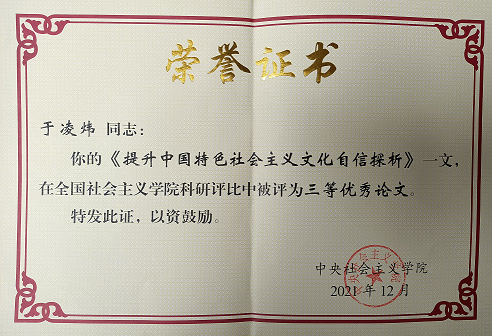 荣誉证书
于凌炜 同志：
你的《提升中国特色社会主义文化自信探析》一文，
在全国社会主义学院科研评比中被评为三等优秀论文。
特发此证，以资鼓励。
中央社会主义学院
2021年12月